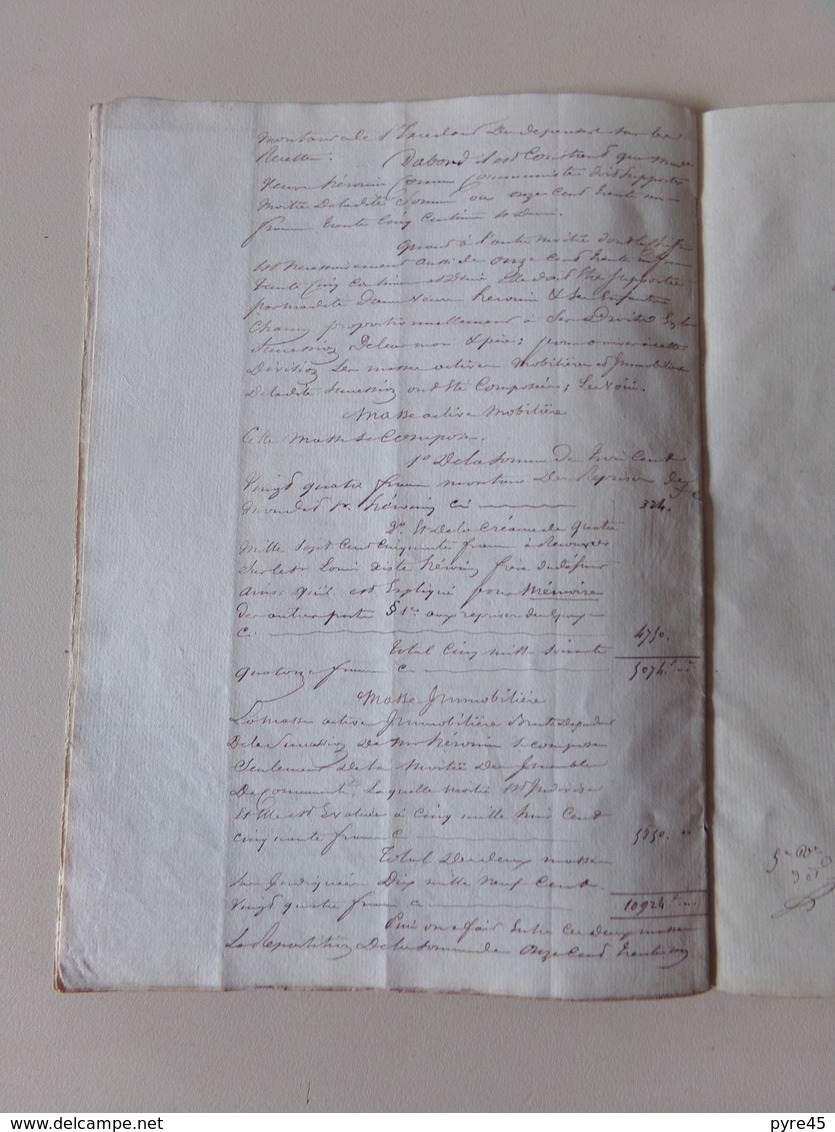 montant de l'Excédant des dépenses sur les
Recettes. D'abord il est Constant que Made
Veuve hérouin Comme Commune doit Supporter
Moitié de ladite Somme ou onze cent trente un
francs trente Cinq Centimes et Demi.
Quant à l'autre moitié dont le chiffre
est necessairement aussi de onze cent trente un francs
trente Cinq Centimes et Demi elle doit Etre Supportée
par madite dame Veuve herouin & Ses Enfants
Chacun proportionnellement à Ses Droits
Succession De leur mari & père; pour arriver à cette
Division les masses actives Mobilière et Immobilière
De ladite Succession ont été Composées; Les Voici.
Masse active Mobilière
Cette Masse Se Compose.
1º De la Somme De trois Cent
Vingt quatre francs montant Des Reprises de
Mondit Sr. hérouin Ci 324.
2º Et De la Créance de quatre
Mille Sept Cent Cinquante francs à Recouvrer
Sur le Sr Louis hérouin frère du défunt
Ainsi qu'il est Expliqué pour Mémoire
Des autres parts § 1er aux reprises des Epoux
C. 4750.
Total Cinq mille Soixante
quatorze francs C. 5074.f " "
Masse Immobilière
La Masse active Immobilière Brute Dépendant
De la Succession De Mr hérouin Se compose
Seulement De la Moitié Des Immeubles
De Communauté, Laquelle moitié est Indivise
Et Elle est Evaluée à Cinq mille huit Cent
Cinquante francs C 5850. "
Total Des deux masses
Sus Indiquées Dix mille Neuf Cent
Vingt quatre francs C 10924.f " "
Puis on a fait Entre Ces Deux masses
La Répartition De la Somme de Onze Cent trente un
www.delcampe.net
pyre45